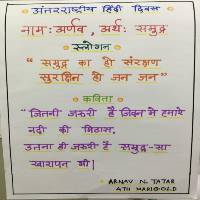 अंतरराष्ट्रीय हिंदी दिवस
नाम: अर्णव, अर्थ: समुद्र
स्लोगन
“ समुद्र का हो संरक्षण
सुरक्षित हो जन जन”
कविता
“ जितनी जरूरी है जिवन मे हमारे
नदी की मिठास,
उतना ही जरूरी है समुद्र-सा
खारापन भी|
ARNAV N. TATAR
4TH MARIGOLD